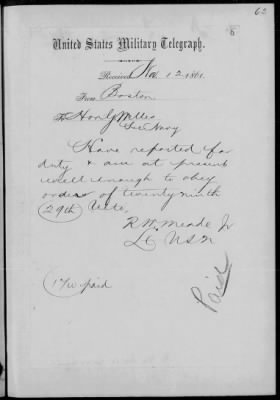 62
8
United States Military Telegraph.
Received Nov. 12 1861.
From Boston
To Hon G Welles
Sec Navy
Have reported for
duty & am at present
well enough to obey
orders of twenty ninth
(29th) Ulto,
R W. Meade Jr
Lt USN
paid
Paid